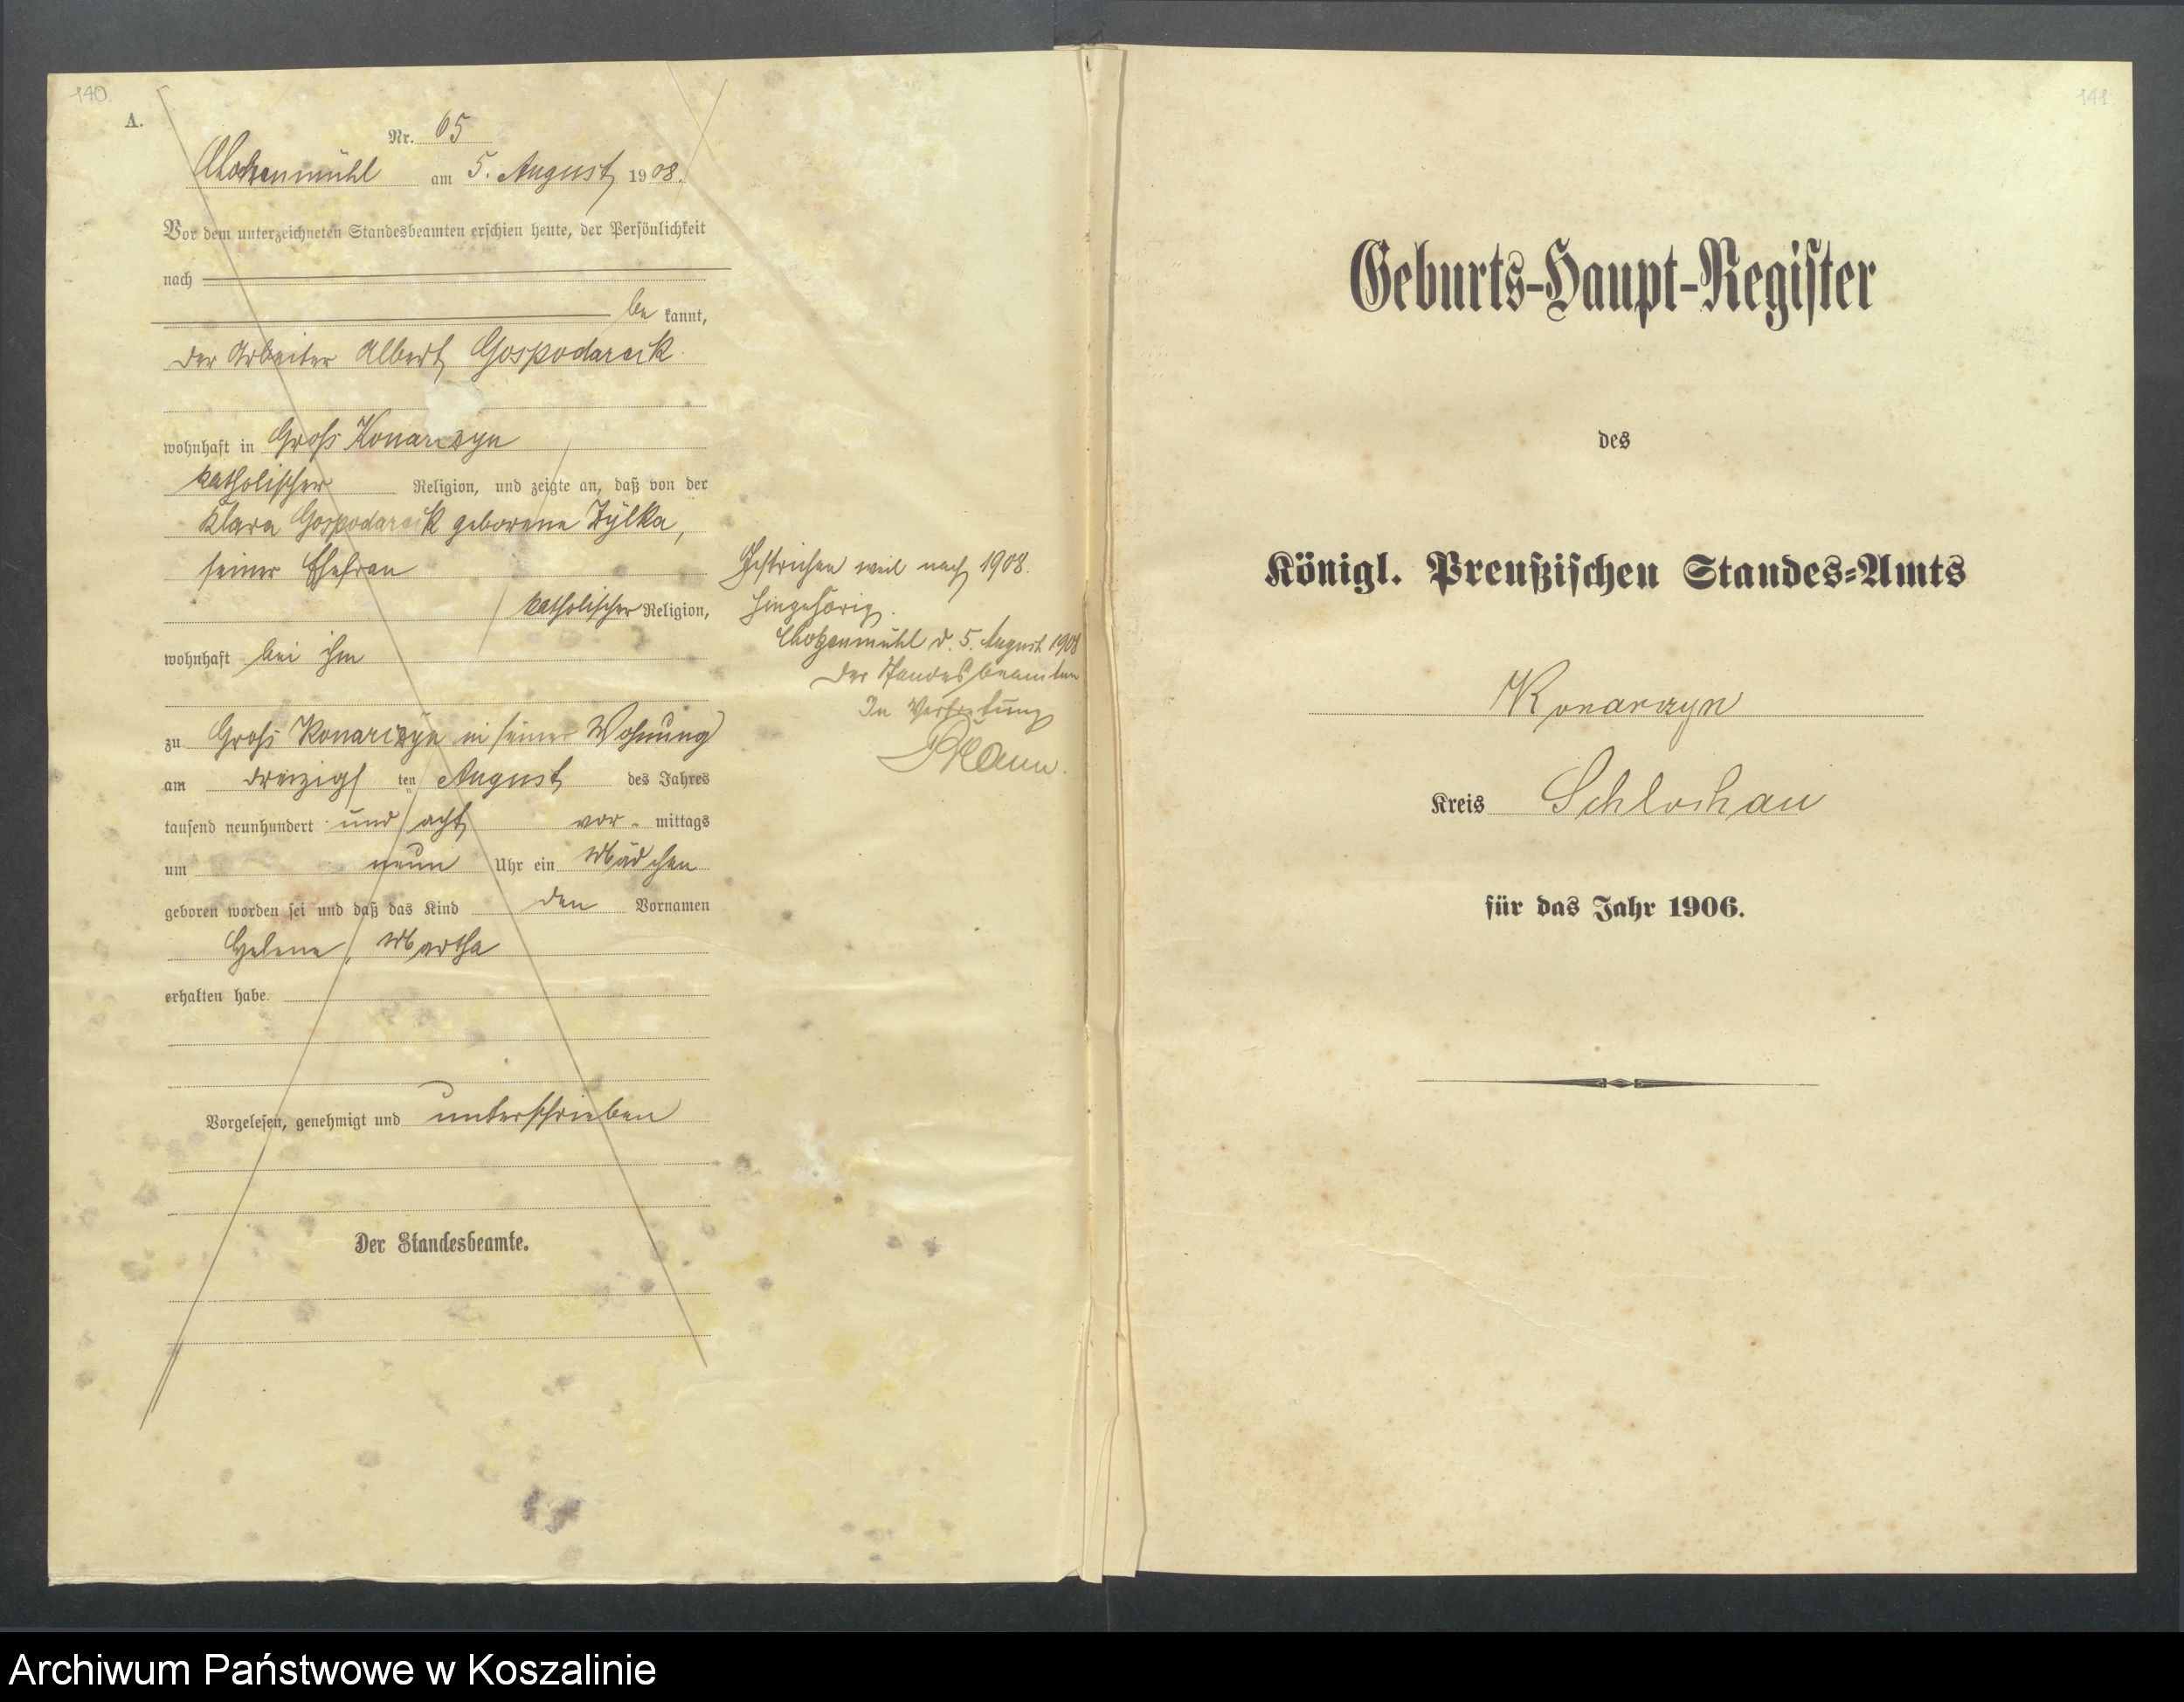 140.
A.
Nr. 65
Chotzenmühl am 5. August 1908.
Vor dem unterzeichneten Standesbeamten erschien heute, der Persönlichkeit
nach
be kannt,
der Arbeiter Albert Gospodarcik
wohnhaft in Groß Konarczyn
katholischer Religion, und zeigte an, daß von der
Klara Gospodarcik geborene Zylka,
seiner Ehefrau
katholischer Religion,
wohnhaft bei ihm
zu Groß Konarczyn in seiner Wohnung
am dreizigsten August des Jahres
tausend neunhundert und acht vor mittags
um neun Uhr ein Mädchen
geboren worden sei und daß das Kind den Vornamen
Helene, Martha
erhalten habe.
Vorgelesen, genehmigt und unterschrieben
Der Standesbeamte.
Gestrichen weil nach 1908.
hingehörig.
Chotzenmühl d. 5. August 1908
Der Standesbeamten
In Vertretung
141.
Geburts-Haupt-Register
des
Königl. Preußischen Standes-Amts
Konarzyn
Kreis Schlochau
für das Jahr 1906.
Archiwum Państwowe w Koszalinie